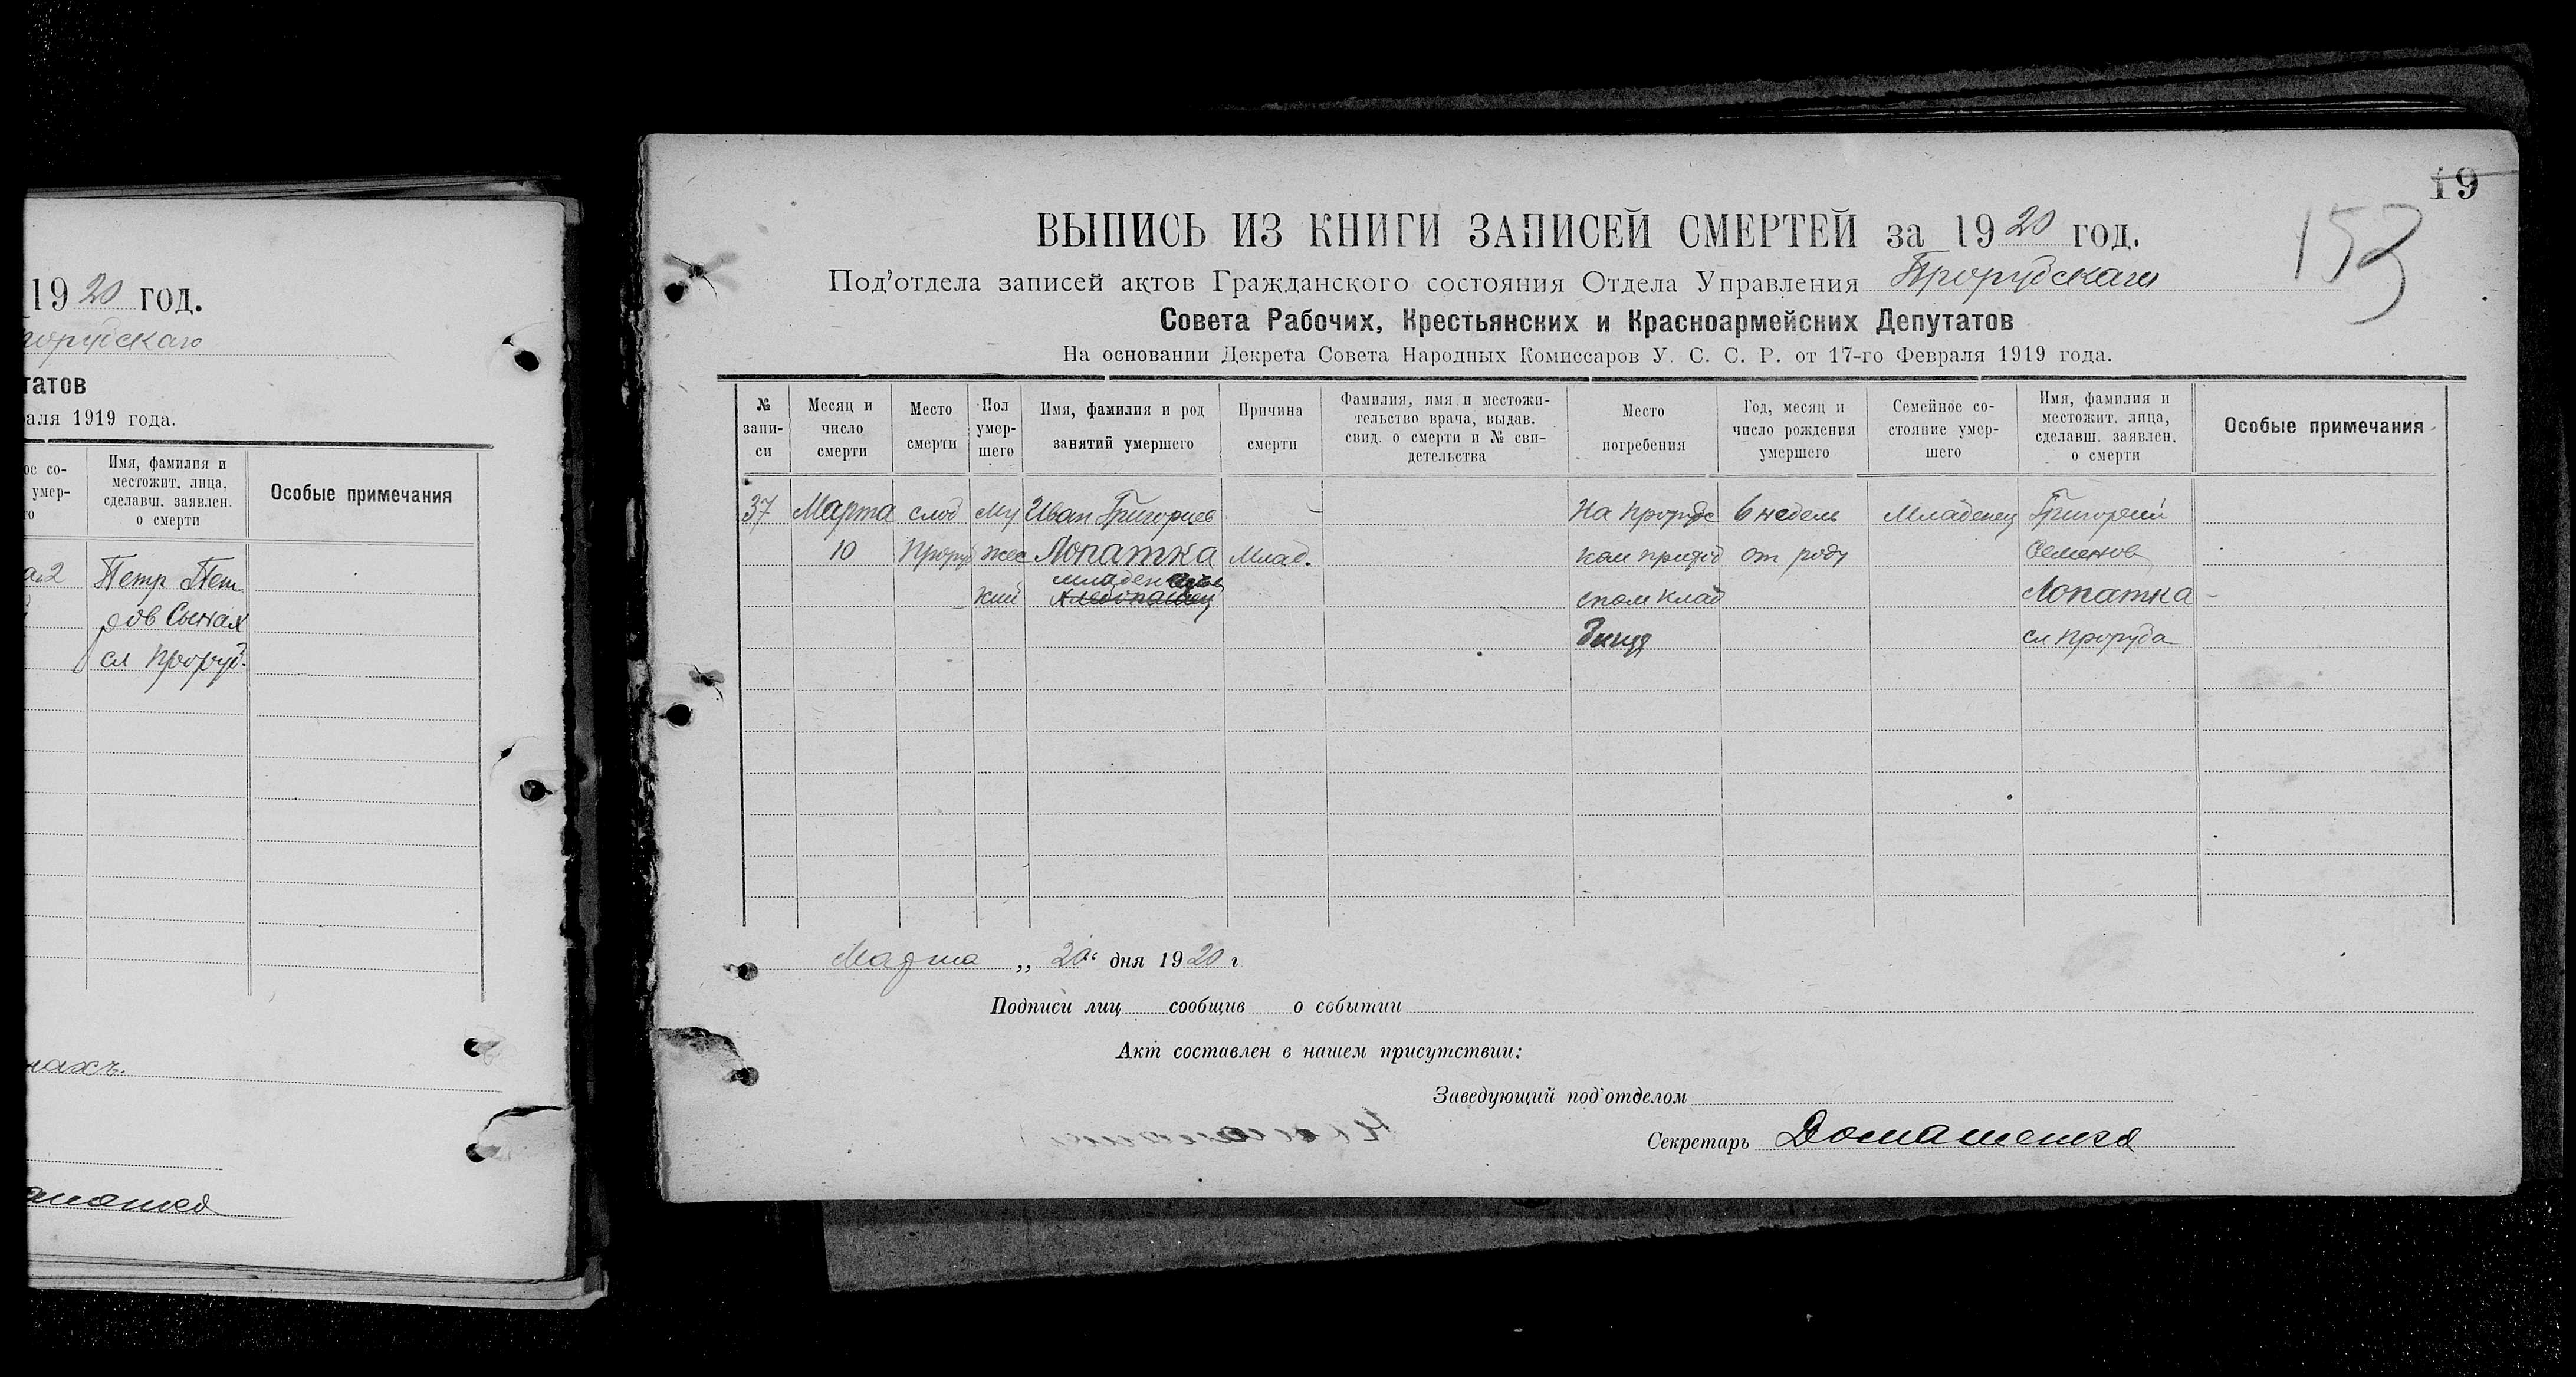 19 20 год.
татов
аля 1919 года.
ое со-
умер-
го
Имя, фамилия и
местожит. лица,
сделавш. заявлен.
о смерти
Особые примечания
Петр Пет
ров Сынах
сл Проруб.
нахъ.
19
153
ВЫПИСЬ ИЗ КНИГИ ЗАПИСЕЙ СМЕРТЕЙ за 1920 год.
Под’отдела записей актов Гражданского состояния Отдела Управления Прорубскаго
Совета Рабочих, Крестьянских и Красноармейских Депутатов
На основании Декрета Совета Народных Комиссаров У. С. С. Р. от 17-го Февраля 1919 года.
№ запи-си
Месяц и число смерти
Место смерти
Пол умер-шего
Имя, фамилия и род занятий умершего
Причина смерти
Фамилия, имя и местожи-тельство врача, выдав. свид. о смерти и № сви-детельства
Место погребения
Год, месяц и число рождения умершего
Семейное со-стояние умер-шего
Имя, фамилия и местожит. лица, сделавш. заявлен. о смерти
Особые примечания
37 Марта слоб Му Иван Григориев - На Прорубс 6 недель Младенец Григорий
10 Проруб жес Лопатка Млад. ком приход от роду Семенов
младенец
кий Хлебопашец ском клад Лопатка
бищу сл Проруба
Марта „20“ дня 1920 г
Подписи лиц сообщив о событии
Акт составлен в нашем присутствии:
Заведующий под’отделом
Секретарь Домашенко